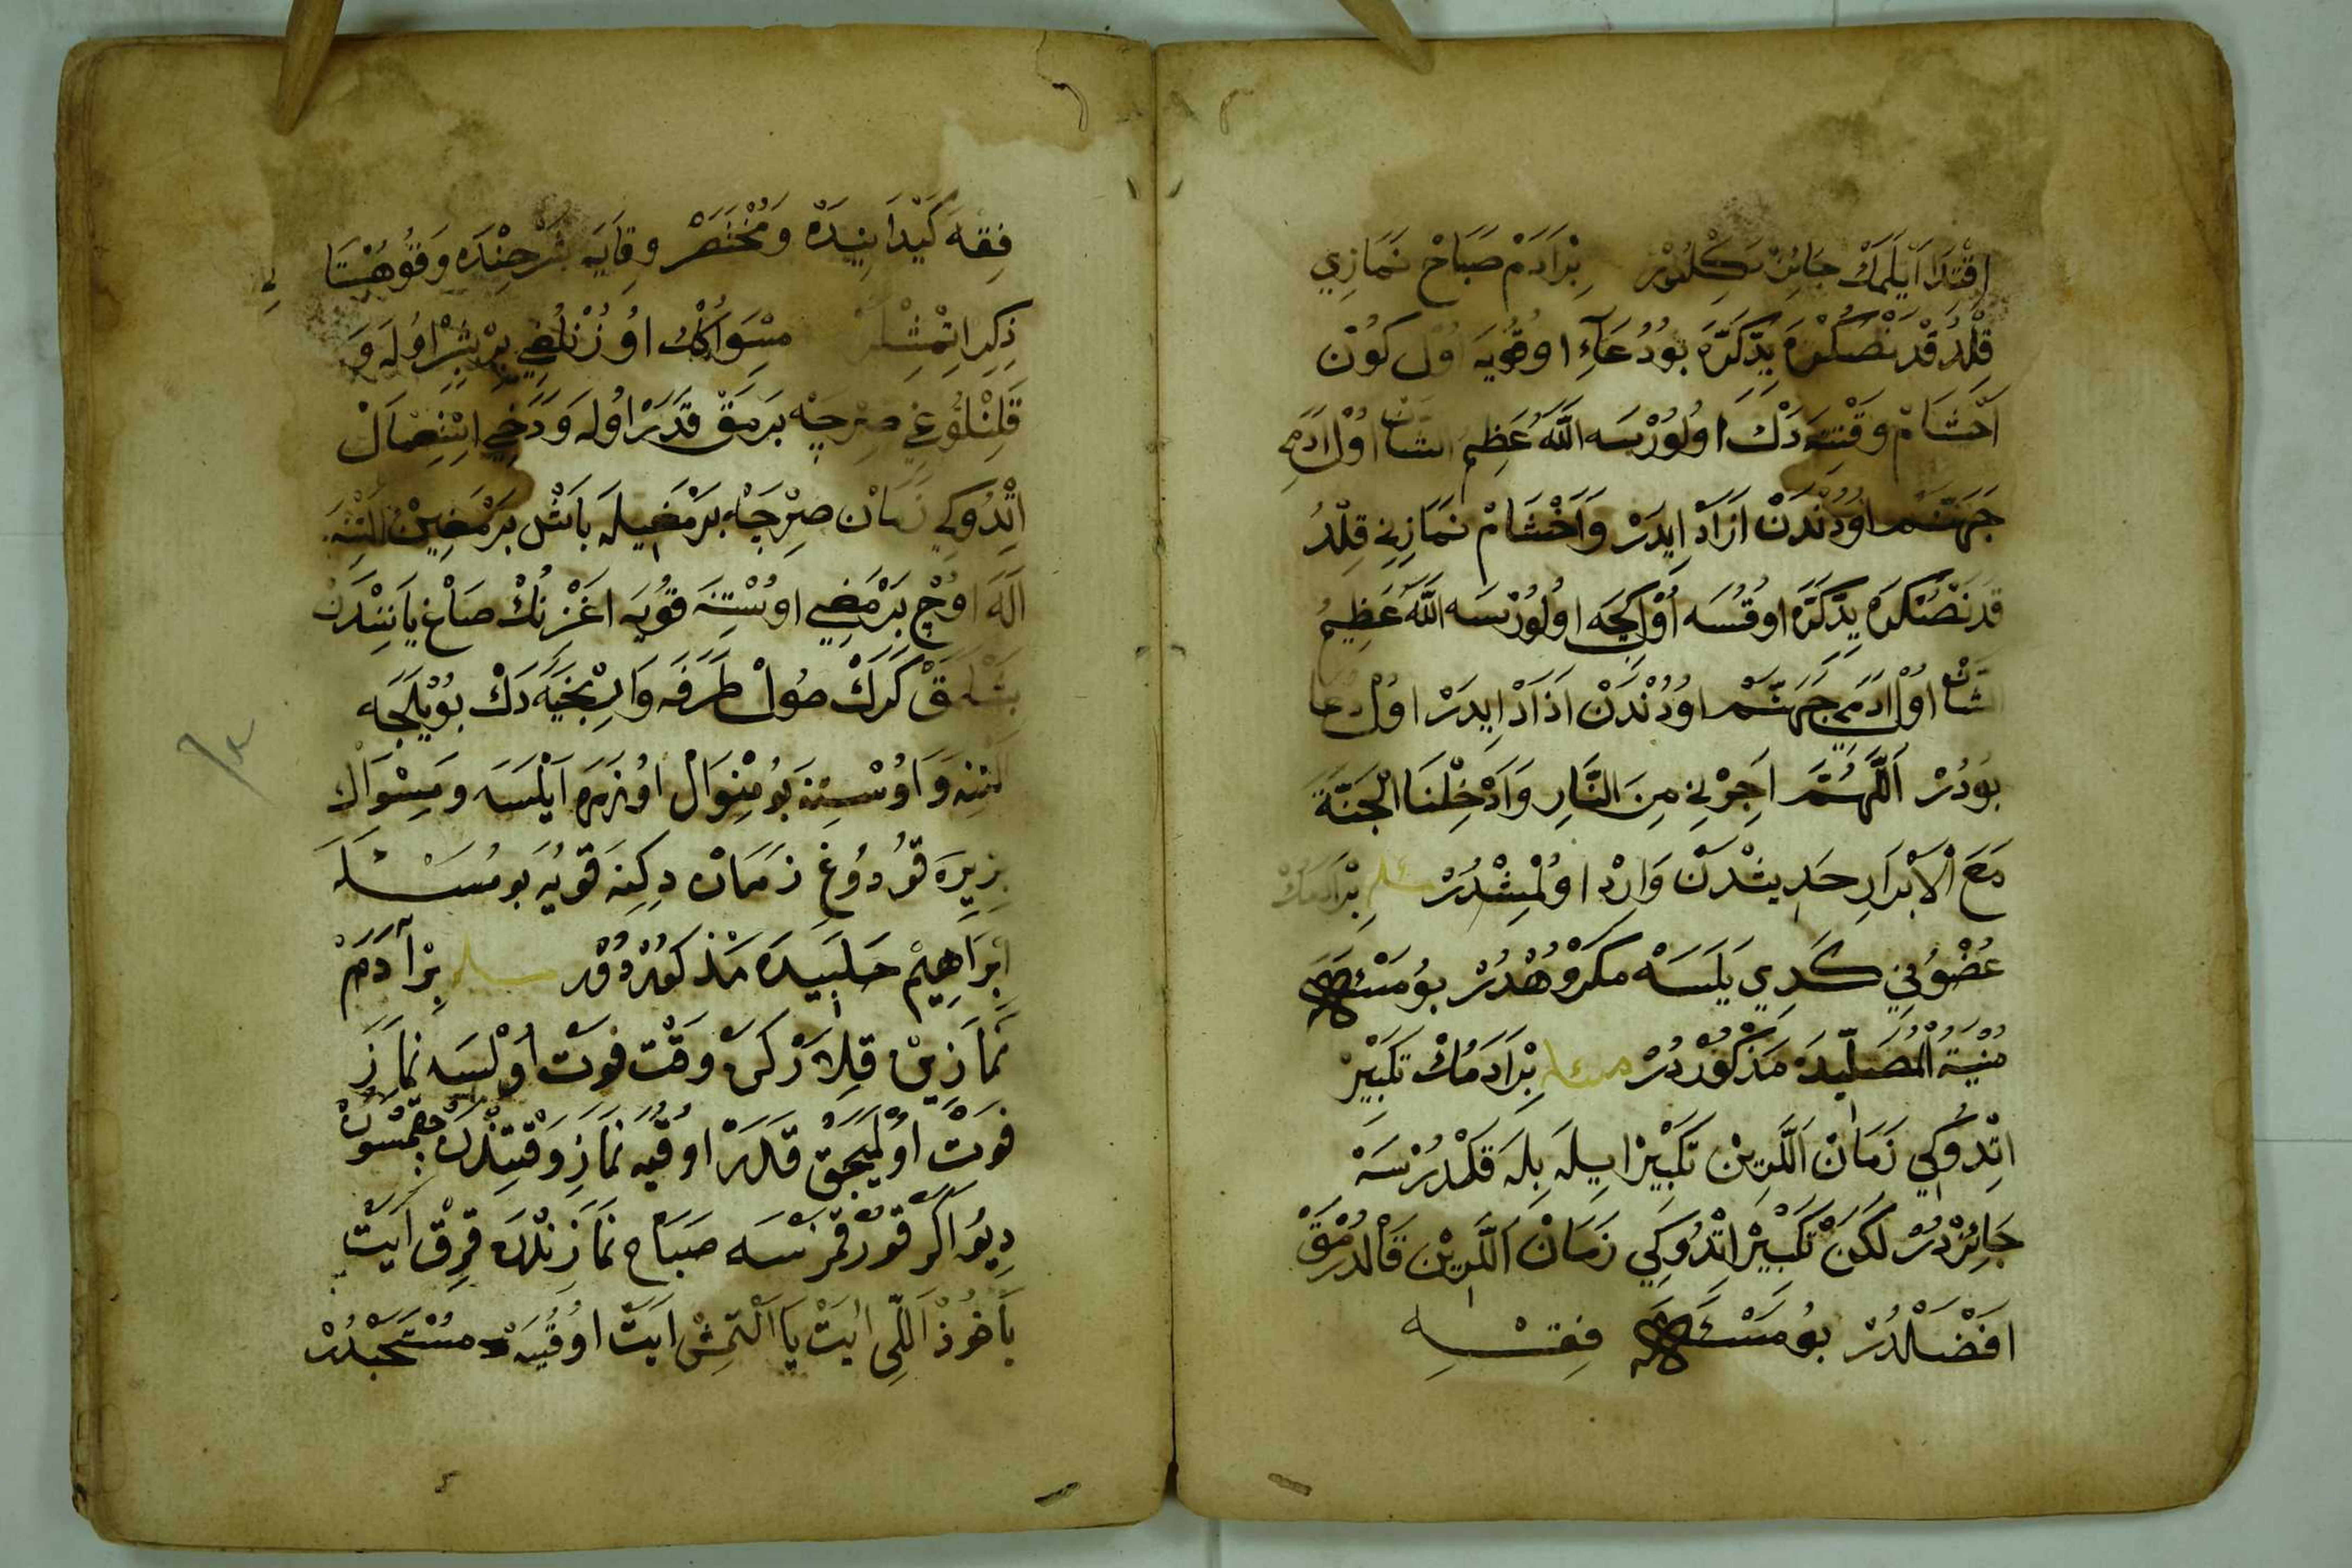 اقْتِدَا اَيْلَمَكْ جَائِزْ دَكِلْدُرْ بِرْ اَدَمْ صَبَاحْ نَمَازِي
قِلْدُقْدَنْصُكْرَه يِدِّكَرَّه بُو دُعَآءِ اوقُويَه اُولْ كُونْ
اَخْشَامْ وَقْتِنَه دَكْ اُولُورْسَه اللّٰه عَظِيمُ الشَّانْ اُولْ اَدَمِي
جَهَنَّمْ اوُدُنْدَنْ اَزَادْ ايِدَرْ وَاَخْشَامْ نَمَازِنِي قِلْدُ
قْدَنْصُنْكَرَه يِدِّكَرَّه اوقُسَه اُوْلكِجَه اوُلُورْسَه اللّٰه عَظِيمُ
الشَّانْ اُولْ اَدَمِي جَهَنَّمْ اوُدُنْدَنْ اَذَادْ ايِدَرْ اوُلْ دُعَا
بُودُرْ اَللَّهُمَّ اَجِرْنِي مِنَ النَّارِ وَاَدْخِلْنَا الْجَنَّةَ
مَعَ الْاَبْرَارِ حَدِيثْدَنْ وَارِدْ اوُلْمِشْدُرْ مسئله بِرْ اَدَمكْ
عُضْوُنِي كَدِي يَلَسَه مَكْرُوهْدُرْ بُو مَسْئَله
مُنْيَةُ الْمُصَلِّيدَه مَذْكُوْردُرْ مسئله بِرْ اَدَمُكْ تَكْبِيرْ
اتْدُوكِي زَمَانْ اَللَّرِينْ تَكْبِيرْ ايِلَه بِلَه قَلْدُرْسَه
جَائِزْدُرْ لَكِنْ تَكْبِيرْ اتْدُوكِي زَمَانْ اَللَّرِيْنْ قَالْدُرْمَقْ
افْضَلْدُرْ بُو مَسْئَله فِقْه
فِقْه كَيْدَانِيدَه وَمُخْتَصَرْ وِقَايَه شَرْحِنْدَه وَقُوهُسْتَا
نِي
ذِكِر اتْمِشْلَرْ مِسْوَاكُكْ اوُزُنْلُغِي بِرْ اوُلَه وَ
قَلِنْلُوغِي صِرْجَه بَرْمَقْ قَدَرْ اوُلَه وَدَخِي اسْتِعْمَالْ
اتْدُوكِي زَمَانْ صِرْجَه بَرْمَغِيلَه بَاشْ بَرْمَغِينْ اَلْتِنَه
اَلَه اوُچْ بَرْمَغِي اوُسْتِنَه قُويَه اغْزِنُكْ صَاغْ يَانِنْدَنْ
بَشْلَمَقْ كَرَكْ صُولْ طَرَفَه وَارِنْجَيَه دَكْ بُويْلَجَه
اَلْتِنَه وَاوُسْتِنَه بُو مِنْوَالْ اوُزَرَه اَيْلَسَه وَمِسْوَاك
يِرِيرَه قُودُوغِ زَمَانْ دِكِنَه قُويَه بُو مَسْئَلَه
اِبْرَاهِيمْ حَلَبِيدَه مَذْكُوْردُوُرْ مسئله بِرْ آدَمْ
نَمَازِينْ قِلَارْكَنْ وَقْت فَوت اُولْسَه نَمَازِ
فَوتْ اُولْمَيَجَقْ قَدَرْ اوُقُيَه نَمَازِ وَقْتِنْدَنْ چِقْمَسُونْ
دِيُو اَكَرْ قُورْقْمَزْسَه صَبَاحْ نَمَازِنْدَه قِرِقْ اَيَتْ
يَاخُوذْ اَللِّي اَيَتْ يَا اَلْتمِشْ اَيَتْ اوُقُيَه مُسْتَحَبْدُرْ